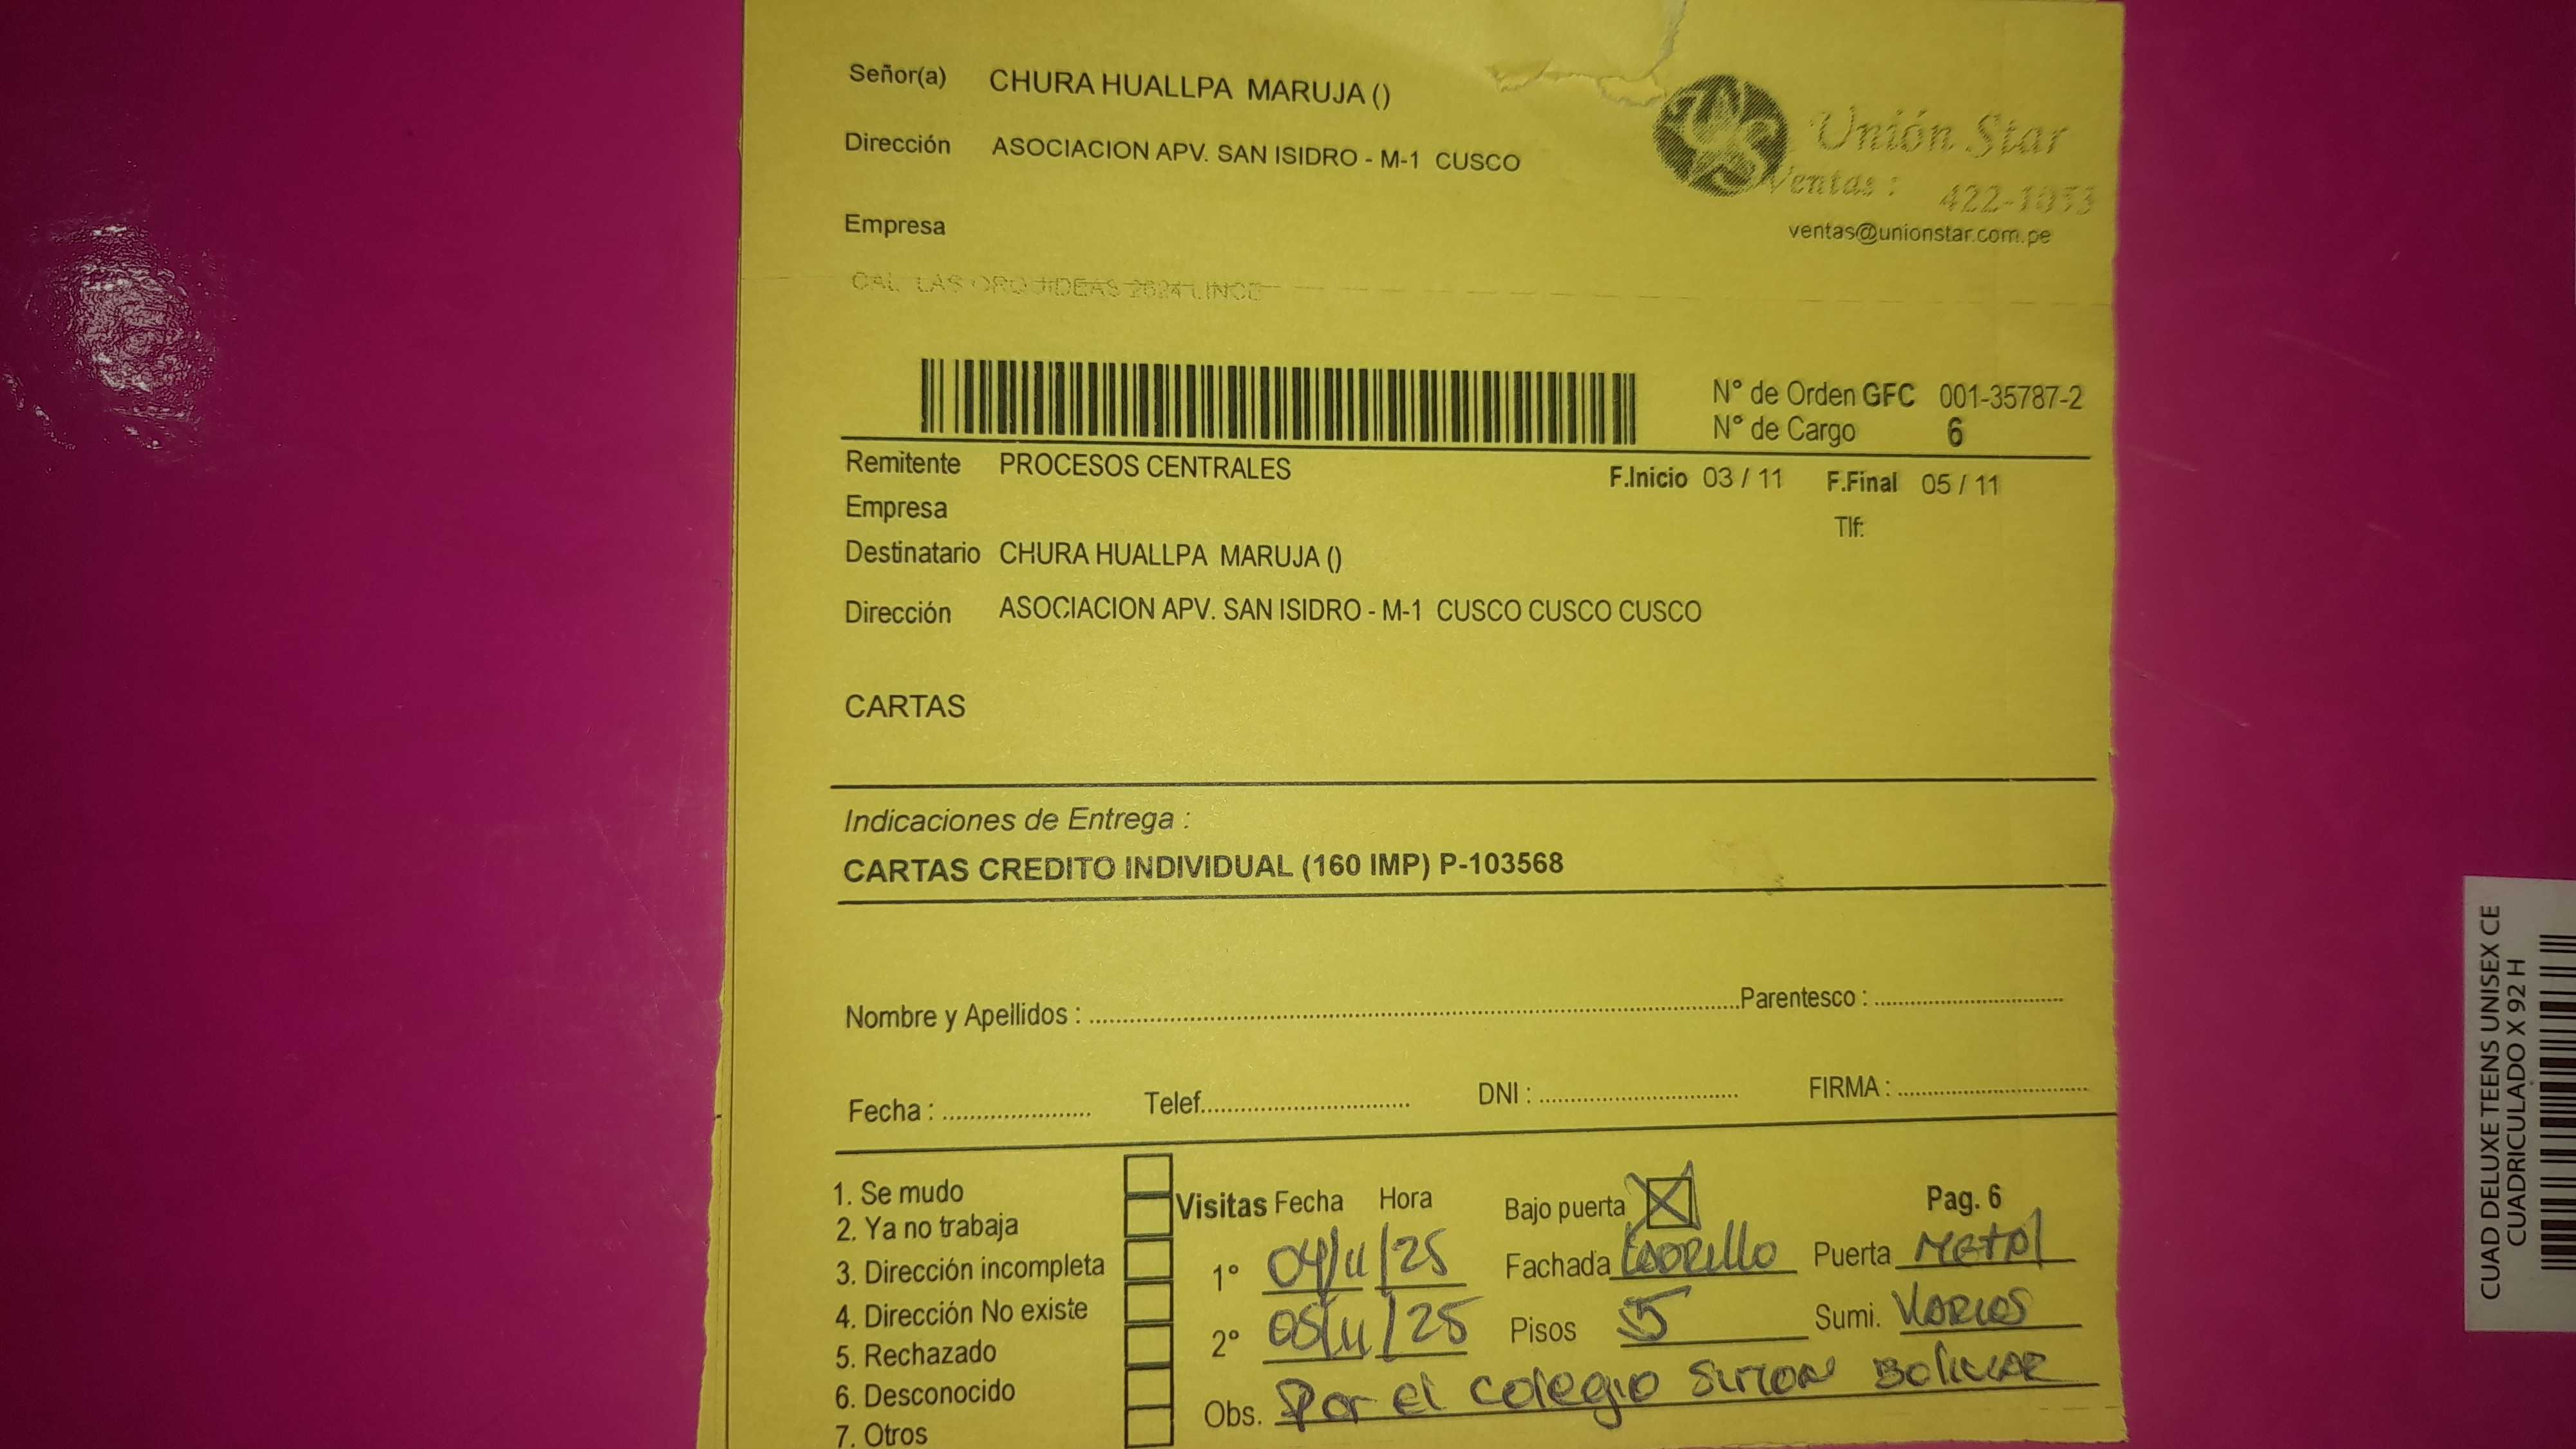 Señor(a) CHURA HUALLPA MARUJA ()
Dirección ASOCIACION APV. SAN ISIDRO - M-1 CUSCO
Unión Star
Ventas : 422-1033
Empresa
ventas@unionstar.com.pe
CAL LAS ORQUIDEAS 2624 LINCE
N° de Orden GFC 001-35787-2
N° de Cargo 6
Remitente PROCESOS CENTRALES
F.Inicio 03 / 11 F.Final 05 / 11
Empresa
Tlf:
Destinatario CHURA HUALLPA MARUJA ()
Dirección ASOCIACION APV. SAN ISIDRO - M-1 CUSCO CUSCO CUSCO
CARTAS
Indicaciones de Entrega :
CARTAS CREDITO INDIVIDUAL (160 IMP) P-103568
Nombre y Apellidos : Parentesco :
Fecha : Telef. DNI : FIRMA :
1. Se mudo
2. Ya no trabaja
3. Dirección incompleta
4. Dirección No existe
5. Rechazado
6. Desconocido
7. Otros
Visitas Fecha Hora Bajo puerta Pag. 6
1° 04/11/25 Fachada Ladrillo Puerta Metal
2° 05/11/25 Pisos 5 Sumi. Varios
Obs. Por el colegio Simon Bolivar
CUAD DELUXE TEENS UNISEX CE
CUADRICULADO X 92 H